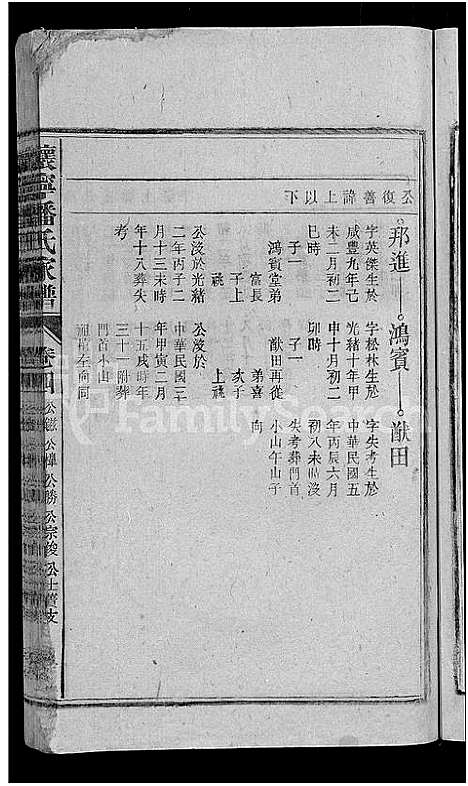 公復善諱上以下
邦進
鴻賓
猷田
字英傑生於
咸豐九年己
未二月初二
巳時
子一
鴻賓堂弟
富長
子上
祧
公沒於光緒
二年丙子二
月十三未時
年十八葬失
考
字松林生於
光緒十年甲
申十月初二
卯時
子一
猷田再從
弟喜
亥子
上祧
公沒於
中華民國三
年甲寅二月
十五戌時年
三十一附葬
門首小山
祖墳全向同
字失考生於
中華民國五
年丙辰六月
初八未時沒
失考葬門首
小山午山子
向
懷寧潘氏家譜
卷四
公勝 公宗俊
FamilySearch